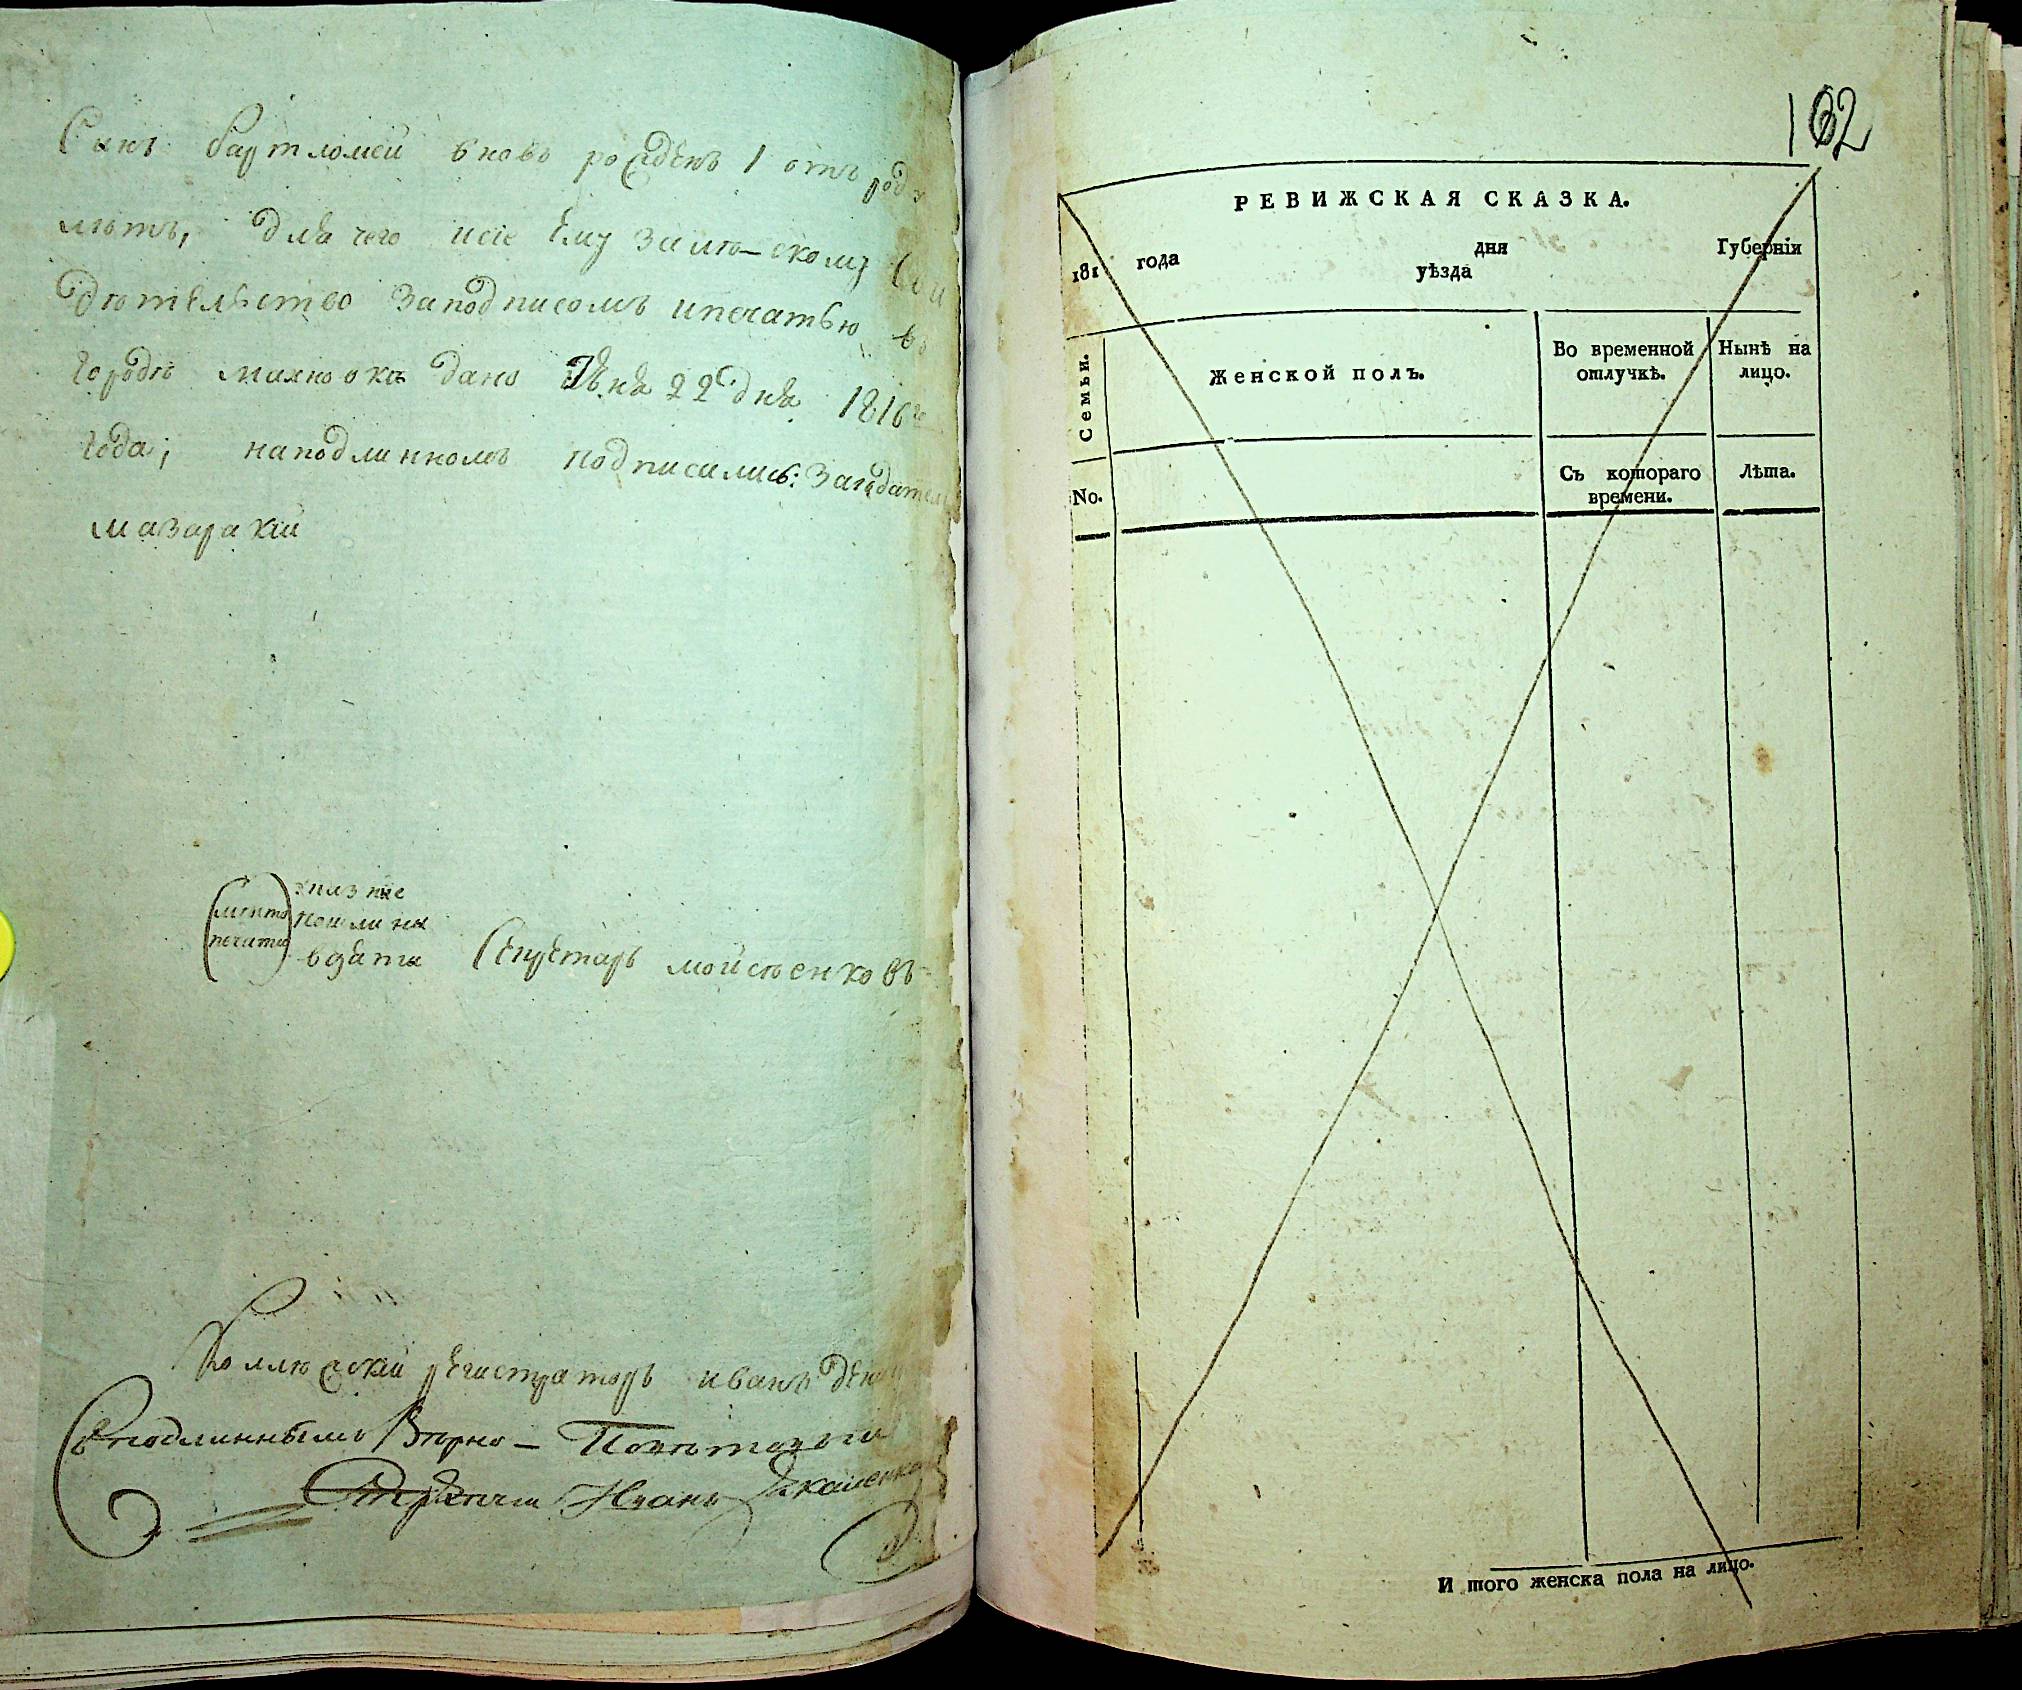 Сынъ бартломей вновъ рожденъ 1 отъ роду
лѣтъ, для чего и сіе Ему залѣскому Сви
дѣтельство заподписомъ ипечатью въ
городѣ махновкѣ дано Іюня 22 дня 1816го
года; наподлинномъ подписались: Засѣдатель
мазаракій
место
печати
пошлины
взяты
Секретарь мойсѣенковъ
Коллежскій регистраторъ иванъ
Сподлиннымъ Вѣрно – Повѣтовый
Стряпчій
162
РЕВИЖСКАЯ СКАЗКА.
181 года дня Губерніи
уѣзда
Семьи.
Женской полъ.
Во временной отлучкѣ.
Нынѣ на лицо.
No.
Съ котораго времени.
Лѣта.
И того женска пола на лицо.